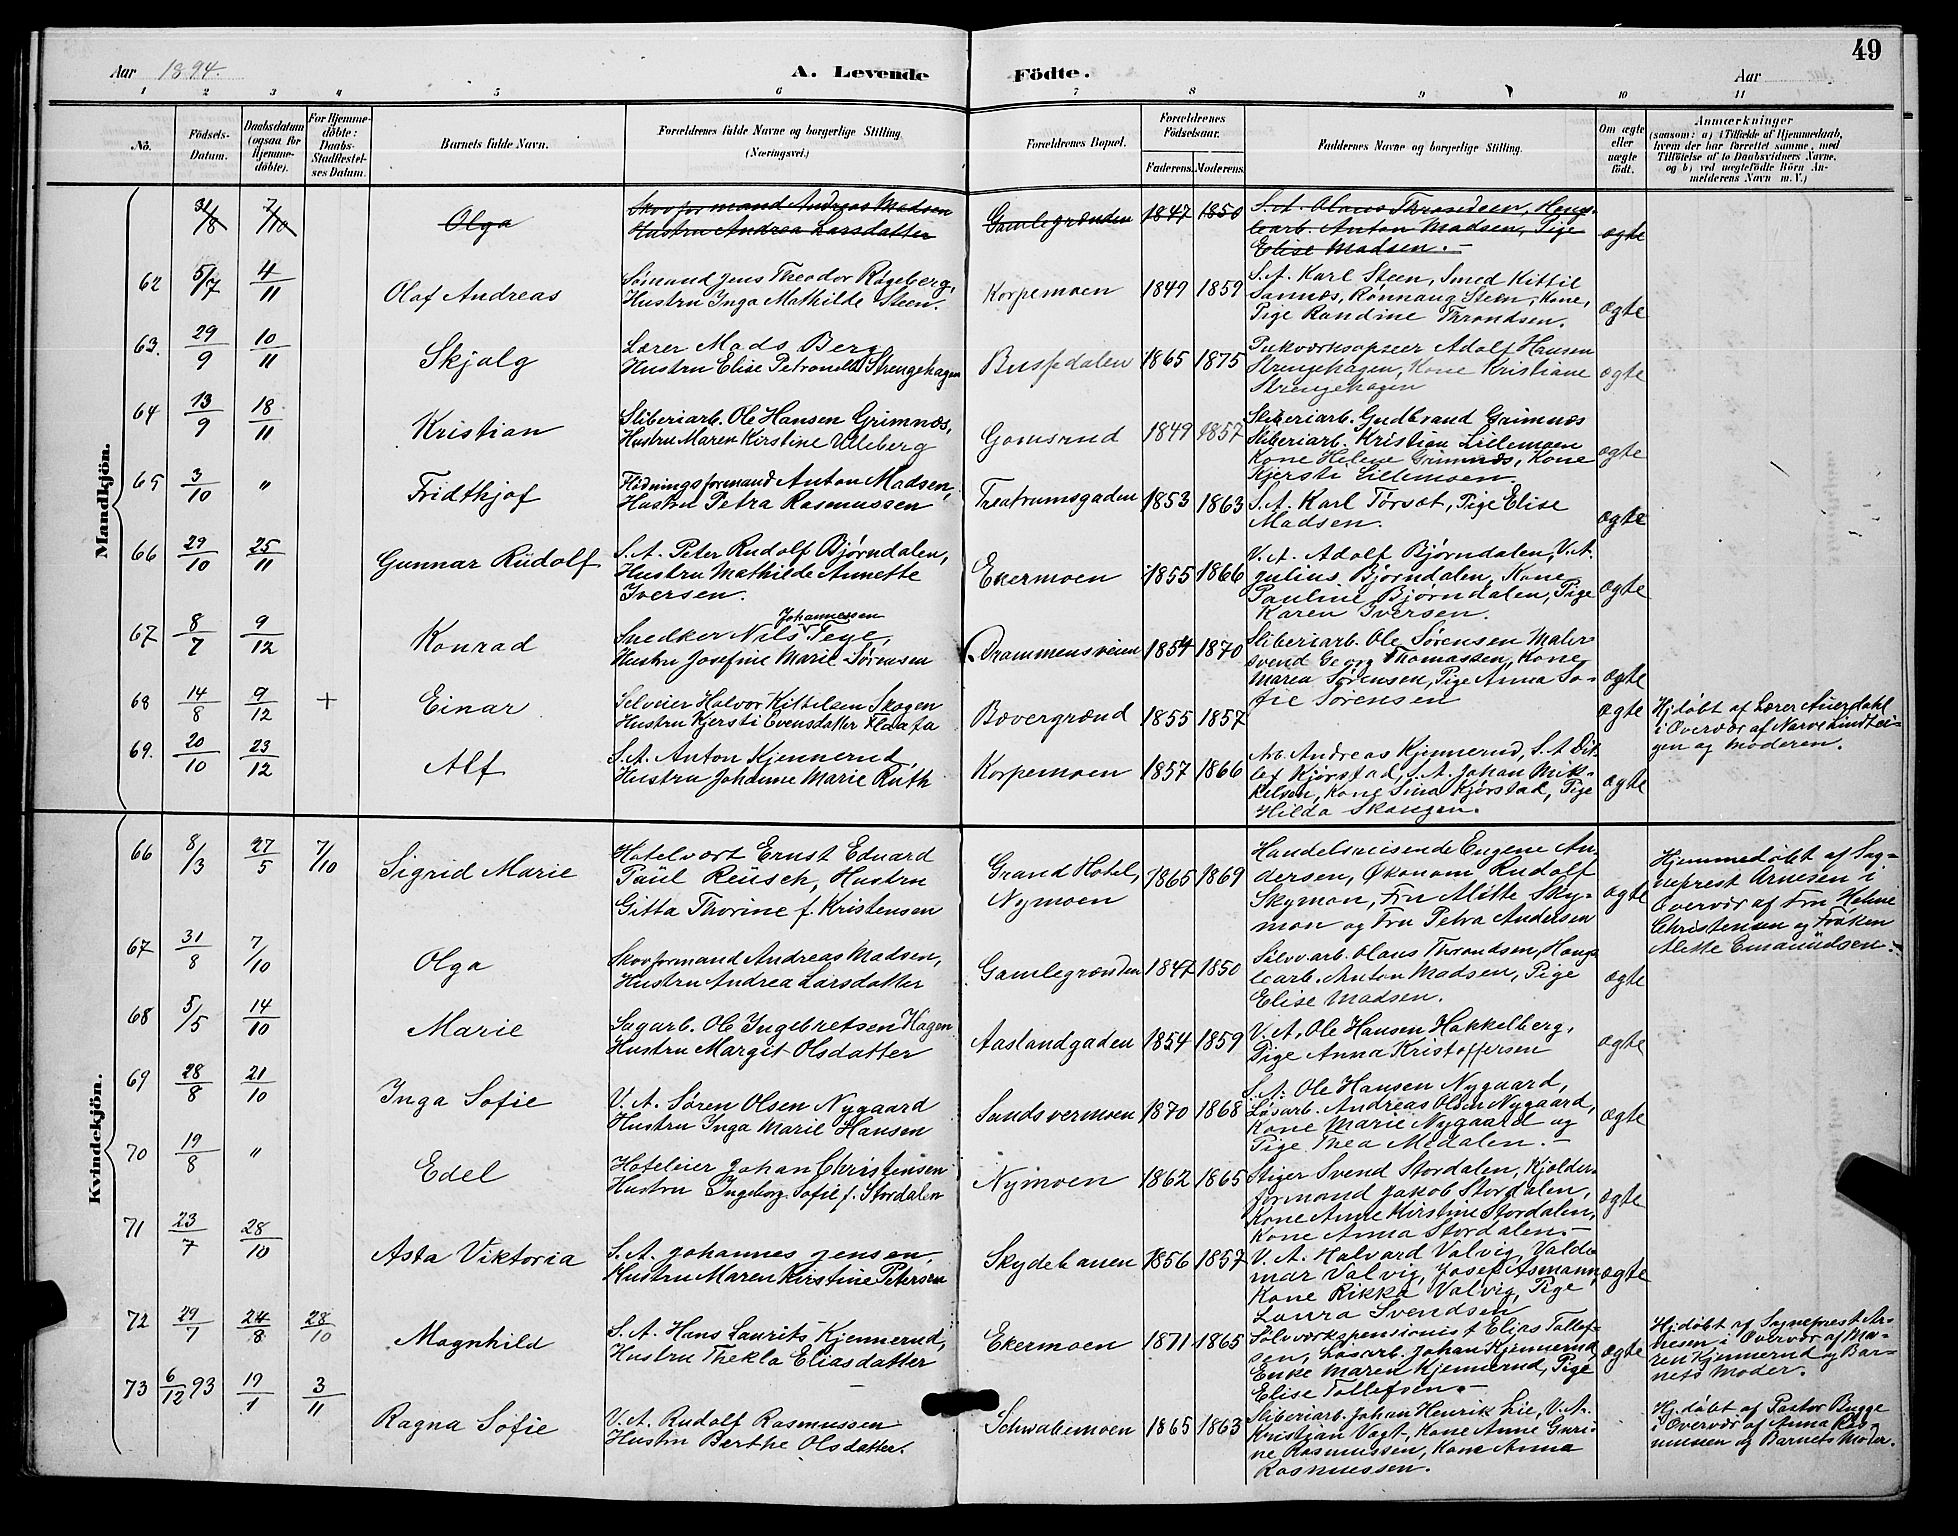 49
Aar 1894.
A. Levende Födte.
Aar
1 2 3 4 5 6 7 8 9 10 11
No.
Födsels-Datum.
Daabsdatum (ogsaa for Hjemme-döbte).
For Hjemme-döbte: Daabs-Stadfæstel-ses Datum.
Barnets fulde Navn.
Forældrenes fulde Navne og borgerlige Stilling. (Næringsvei.)
Forældrenes Bopæl.
Forældrenes Födselsaar.
Faderens. Moderens.
Faddernes Navne og borgerlige Stilling.
Om ægte eller uægte født.
Anmærkninger
(saasom: a) i Tilfælde af Hjemmedaab,
hvem der har forrettet samme, med
Tilföielse af to Daabsvidners Navne,
og b) ved uægtefödte Börn An-
melderens Navn m. V.)
Mandkjön.
31/8 7/10 Olga
Skovformand Andreas Madsen
Hustru Andrea Larsdatter
Gamlegrænden 1847 1850
S.A. Olaus Throndsen, Hengs-
learb. Anton Madsen, Pige
Elise Madsen.
ægte
62 5/7 4/11 Olaf Andreas
Sømand Jens Theodor Røgeberg,
Hustru Inga Mathilde Steen.
Korpemoen 1849 1859
S.A. Karl Steen, Smed Kittil
Sannæs, Rønnaug Steen, Kone,
Pige Randine Throndsen.
ægte
63. 29/9 10/11 Skjalg
Lærer Mads Berg
Hustru Elise Petronella Strengehagen
Bussedalen 1865 1875
Pukværksopseer Adolf Hansen
Strengehagen, Kone Kristiane
Strengehagen
ægte
64 13/9 18/11 Kristian
Sliberiarb. Ole Hansen Grimnæs,
Hustru Maren Kirstine Ulleberg
Gomsrud 1849 1857
Sliberiarb. Gudbrand Grimnæs
Sliberiarb. Kristian Lillemoen
Kone Helene Grimnæs, Kone
Kjersti Lillemoen
ægte
65 3/10 " Fridthjof
Flødningsformand Anton Madsen,
Hustru Petra Rasmussen
Theatrumsgaden 1853 1863
S.A. Karl Torsæt, Pige Elise
Madsen.
ægte
66 29/10 25/11 Gunnar Rudolf
S.A. Peter Rudolf Bjørndalen,
Hustru Mathilde Annette
Iversen.
Ekermoen 1855 1866
V.A. Adolf Bjørndalen, V.A.
Julius Bjørndalen, Kone
Pauline Bjørndalen, Pige
Karen Iversen.
ægte
67 8/7 9/12 Konrad
Johannessen
Snedker Nils Teye,
Hustru Josefine Marie Sørensen
Drammensveien 1854 1870
Sliberiarb. Ole Sørensen Maler-
svend Georg Thomassen, Kone
Maren Sørensen, Pige Anna So-
fie Sørensen
ægte
68 14/8 9/12 + Einar
Selveier Halvor Kittilsen Skogen
Hustru Kjersti Evensdatter
Bævergrænd 1855 1857
ægte
Hj.døbt af Lærer Auerdahl
i Overvær af Narve Lindtei-
gen og Moderen.
69. 20/10 23/12 Alf
S.A. Anton Kjennerud,
Hustru Johanne Marie Ruth
Korpemoen 1857 1866
Arb. Andreas Kjennerud, S.A. Dit-
lef Kjørstad, S.A. Johan Mik-
kelsen, Kone Sina Kjørstad, Pige
Hilda Skougen.
ægte
Kvindekjön.
66 8/3 27/5 7/10 Sigrid Marie
Hotelvært Ernst Eduard
Paul Reusch, Hustru
Gitta Thorine f. Kristensen
Grand Hotel,
Nymoen
1865 1869
Handelsreisende Eugene An-
dersen, Økonom Rudolf
Skymon, Fru Alitte Sky-
mon og Fru Petra Andersen
ægte
Hjemmedøbt af Sog-
neprest Arnesen i
Overvær af Fru Helene
Christensen og Frøken
Alette Emanudsen.
67 31/8 7/10 Olga
Skovformand Andreas Madsen,
Hustru Andrea Larsdatter
Gamlegrænden 1847 1850
Sølvarb. Olaus Throndsen, Hengs-
learb. Anton Madsen, Pige
Elise Madsen.
ægte
68 5/5 14/10 Marie
Sagarb. Ole Ingebretsen Hagen
Hustru Margit Olsdatter
Aaslandgaden 1854 1859
V.A. Ole Hansen Hakkelberg,
Pige Anna Kristoffersen
ægte
69 28/8 21/10 Inga Sofie
V.A. Søren Olsen Nygaard
Hustru Inga Marie Hansen
Sandsvermoen 1870 1868
S.A. Ole Hansen Nygaard,
Løsarb. Andreas Olsen Nygaard,
Kone Marie Nygaard og
Pige Thea Medalen.
ægte
70 19/8 " Edel
Hoteleier Johan Christensen
Hustru Ingeborg Sofie f. Stordalen
Nymoen 1862 1865
Stiger Svend Stordalen, Kjolder-
formand Jakob Stordalen,
Kone Anne Kirstine Stordalen,
Kone Anna Stordalen.
ægte
71 23/7 28/10 Asta Viktoria
S.A. Johannes Jensen,
Hustru Maren Kirstine Petersen
Skydebanen 1856 1857
V.A. Halvard Valvig, Valde-
mar Valvig, Josef Asmann,
Kone Rikka Valvig, Pige
Laura Svendsen
ægte
72 29/7 24/8 28/10 Magnhild
S.A. Hans Laurits Kjennerud,
Hustru Thekla Eliasdatter
Ekermoen 1871 1865
Sølvværkspensionist Elias Tollef-
sen, Løsarb. Johan Kjennerud,
Enke Maren Kjennerud, Pige
Elise Tollefsen.
ægte
Hj.døbt af Sogneprest Ar-
nesen i Overvær af Ma-
ren Kjennerud og Bar-
nets Moder.
73 6/12 93 19/1 3/11 Ragna Sofie
V.A. Rudolf Rasmussen
Hustru Berthe Olsdatter.
Schwabemoen 1865 1863
Sliberiarb. Johan Henrik Lie, V.A.
Kristian Vogt, Kone Anne Guri-
ne Rasmussen, Kone Anna
Rasmussen.
ægte
Hj.døbt af Pastor Bugge
i Overvær af Anna Ras-
mussen og Barnets Moder.